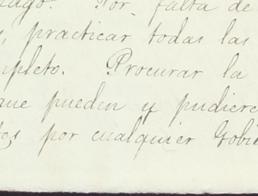 Por falta de
, practicar todas las
mpleto. Procurar la
que pueden y pudiere
tes por cualquier Gobi